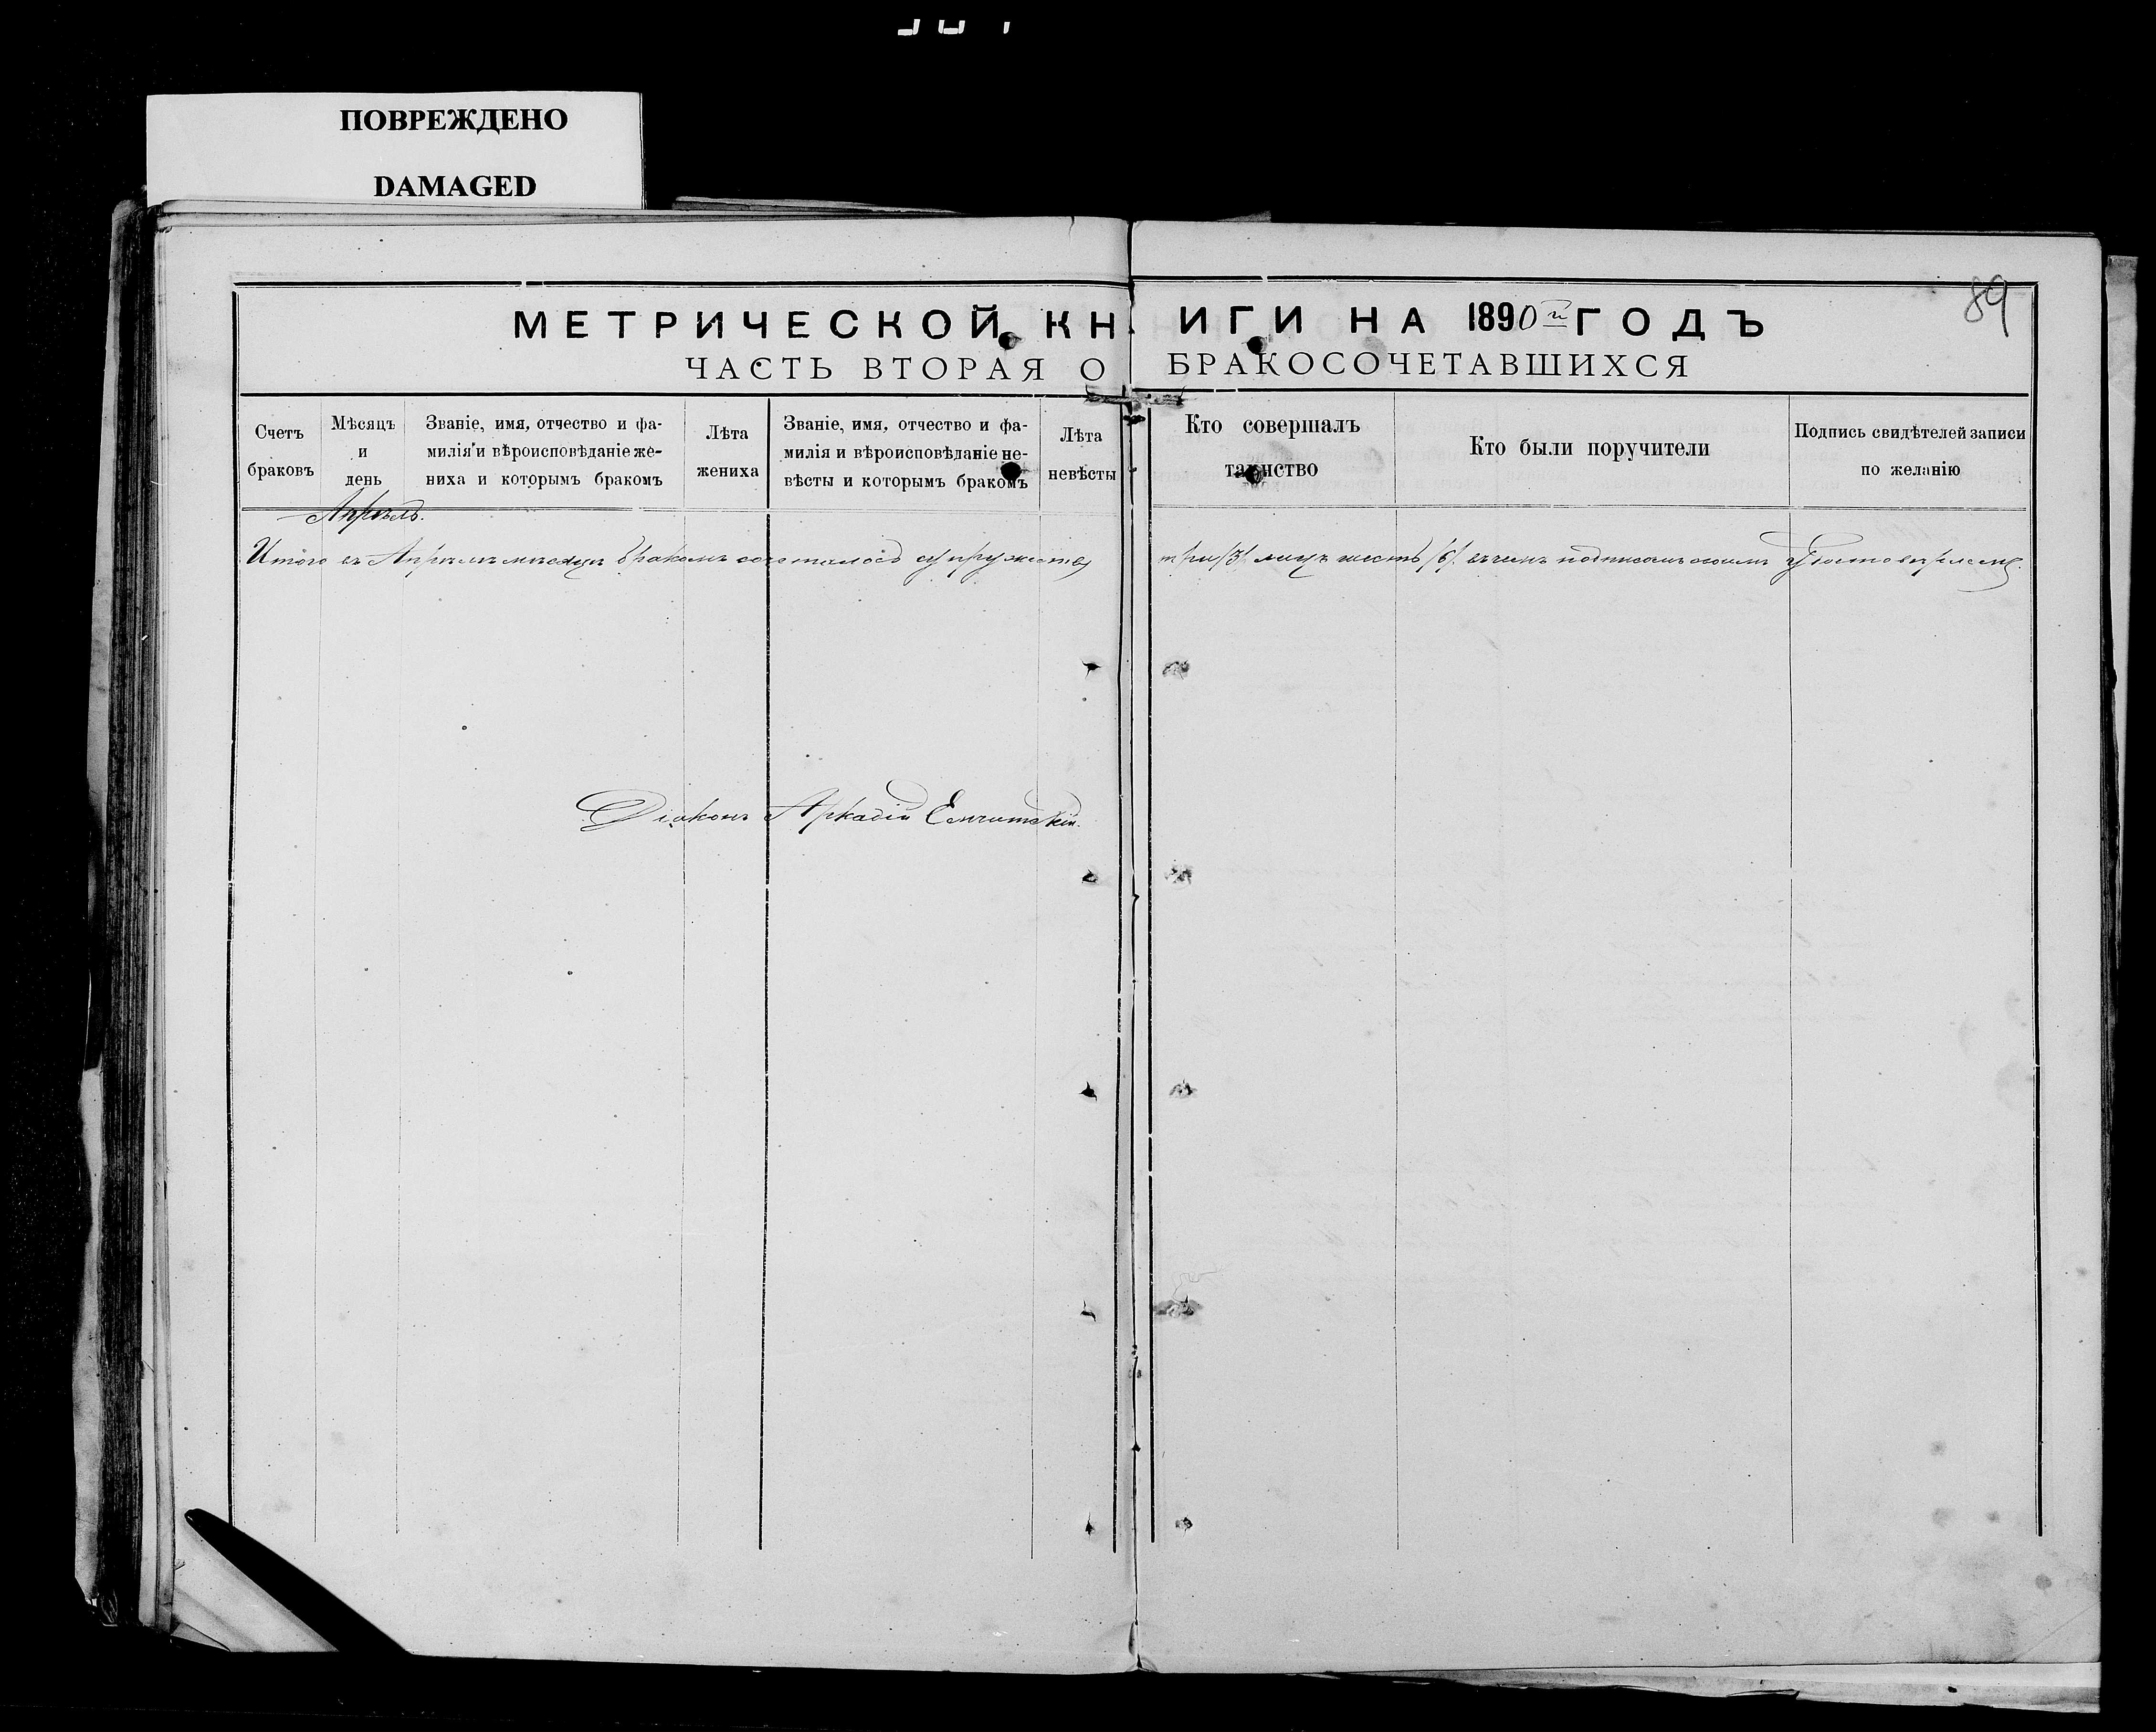 ПОВРЕЖДЕНО
DAMAGED
89
МЕТРИЧЕСКОЙ КНИГИ НА 1890й ГОДЪ
ЧАСТЬ ВТОРАЯ О БРАКОСОЧЕТАВШИХСЯ
Счетъ браковъ
Мѣсяцъ и день
Званіе, имя, отчество и фа-
милія и вѣроисповѣданіе же-
ниха и которымъ бракомъ
Лѣта жениха
Званіе, имя, отчество и фа-
милія и вѣроисповѣданіе не-
вѣсты и которымъ бракомъ
Лѣта невѣсты
Кто совершалъ таинство
Кто были поручители
Подпись свидѣтелей записи по желанію
Апрѣль.
Итого въ Апрѣлѣ мѣсяцѣ бракомъ сочеталось супружествъ три /3/ лицъ шесть /6/. въ чемъ подписомъ своимъ удостовѣряемъ.
Діаконъ Аркадій